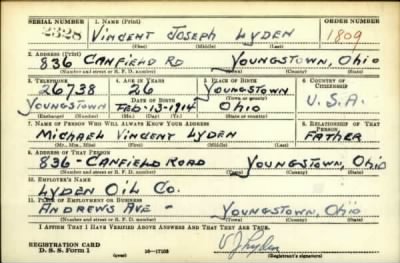 SERIAL NUMBER 1. NAME (Print) ORDER NUMBER
2328 VINCENT JOSEPH LYDEN 1809
(First) (Middle) (Last)
2. ADDRESS (Print)
836 CANFIELD RD YOUNGSTOWN, OHIO
(Number and street or R. F. D. number) (Town) (County) (State)
3. TELEPHONE 4. AGE IN YEARS 5. PLACE OF BIRTH 6. COUNTRY OF CITIZENSHIP
26738 26 YOUNGSTOWN
DATE OF BIRTH (Town or county) U.S.A.
YOUNGSTOWN FEB-13-1914 OHIO
(Exchange) (Number) (Mo.) (Day) (Yr.) (State or country)
7. NAME OF PERSON WHO WILL ALWAYS KNOW YOUR ADDRESS 8. RELATIONSHIP OF THAT PERSON
MICHAEL VINCENT LYDEN FATHER
(Mr., Mrs., Miss) (First) (Middle) (Last)
9. ADDRESS OF THAT PERSON
836-CANFIELD ROAD YOUNGSTOWN, OHIO
(Number and street or R. F. D. number) (Town) (County) (State)
10. EMPLOYER'S NAME
LYDEN OIL CO.
11. PLACE OF EMPLOYMENT OR BUSINESS
ANDREWS AVE - YOUNGSTOWN, OHIO
(Number and street or R. F. D. number) (Town) (County) (State)
I AFFIRM THAT I HAVE VERIFIED ABOVE ANSWERS AND THAT THEY ARE TRUE.
REGISTRATION CARD
D. S. S. Form 1 (over) V J Lyden
(Registrant's signature)